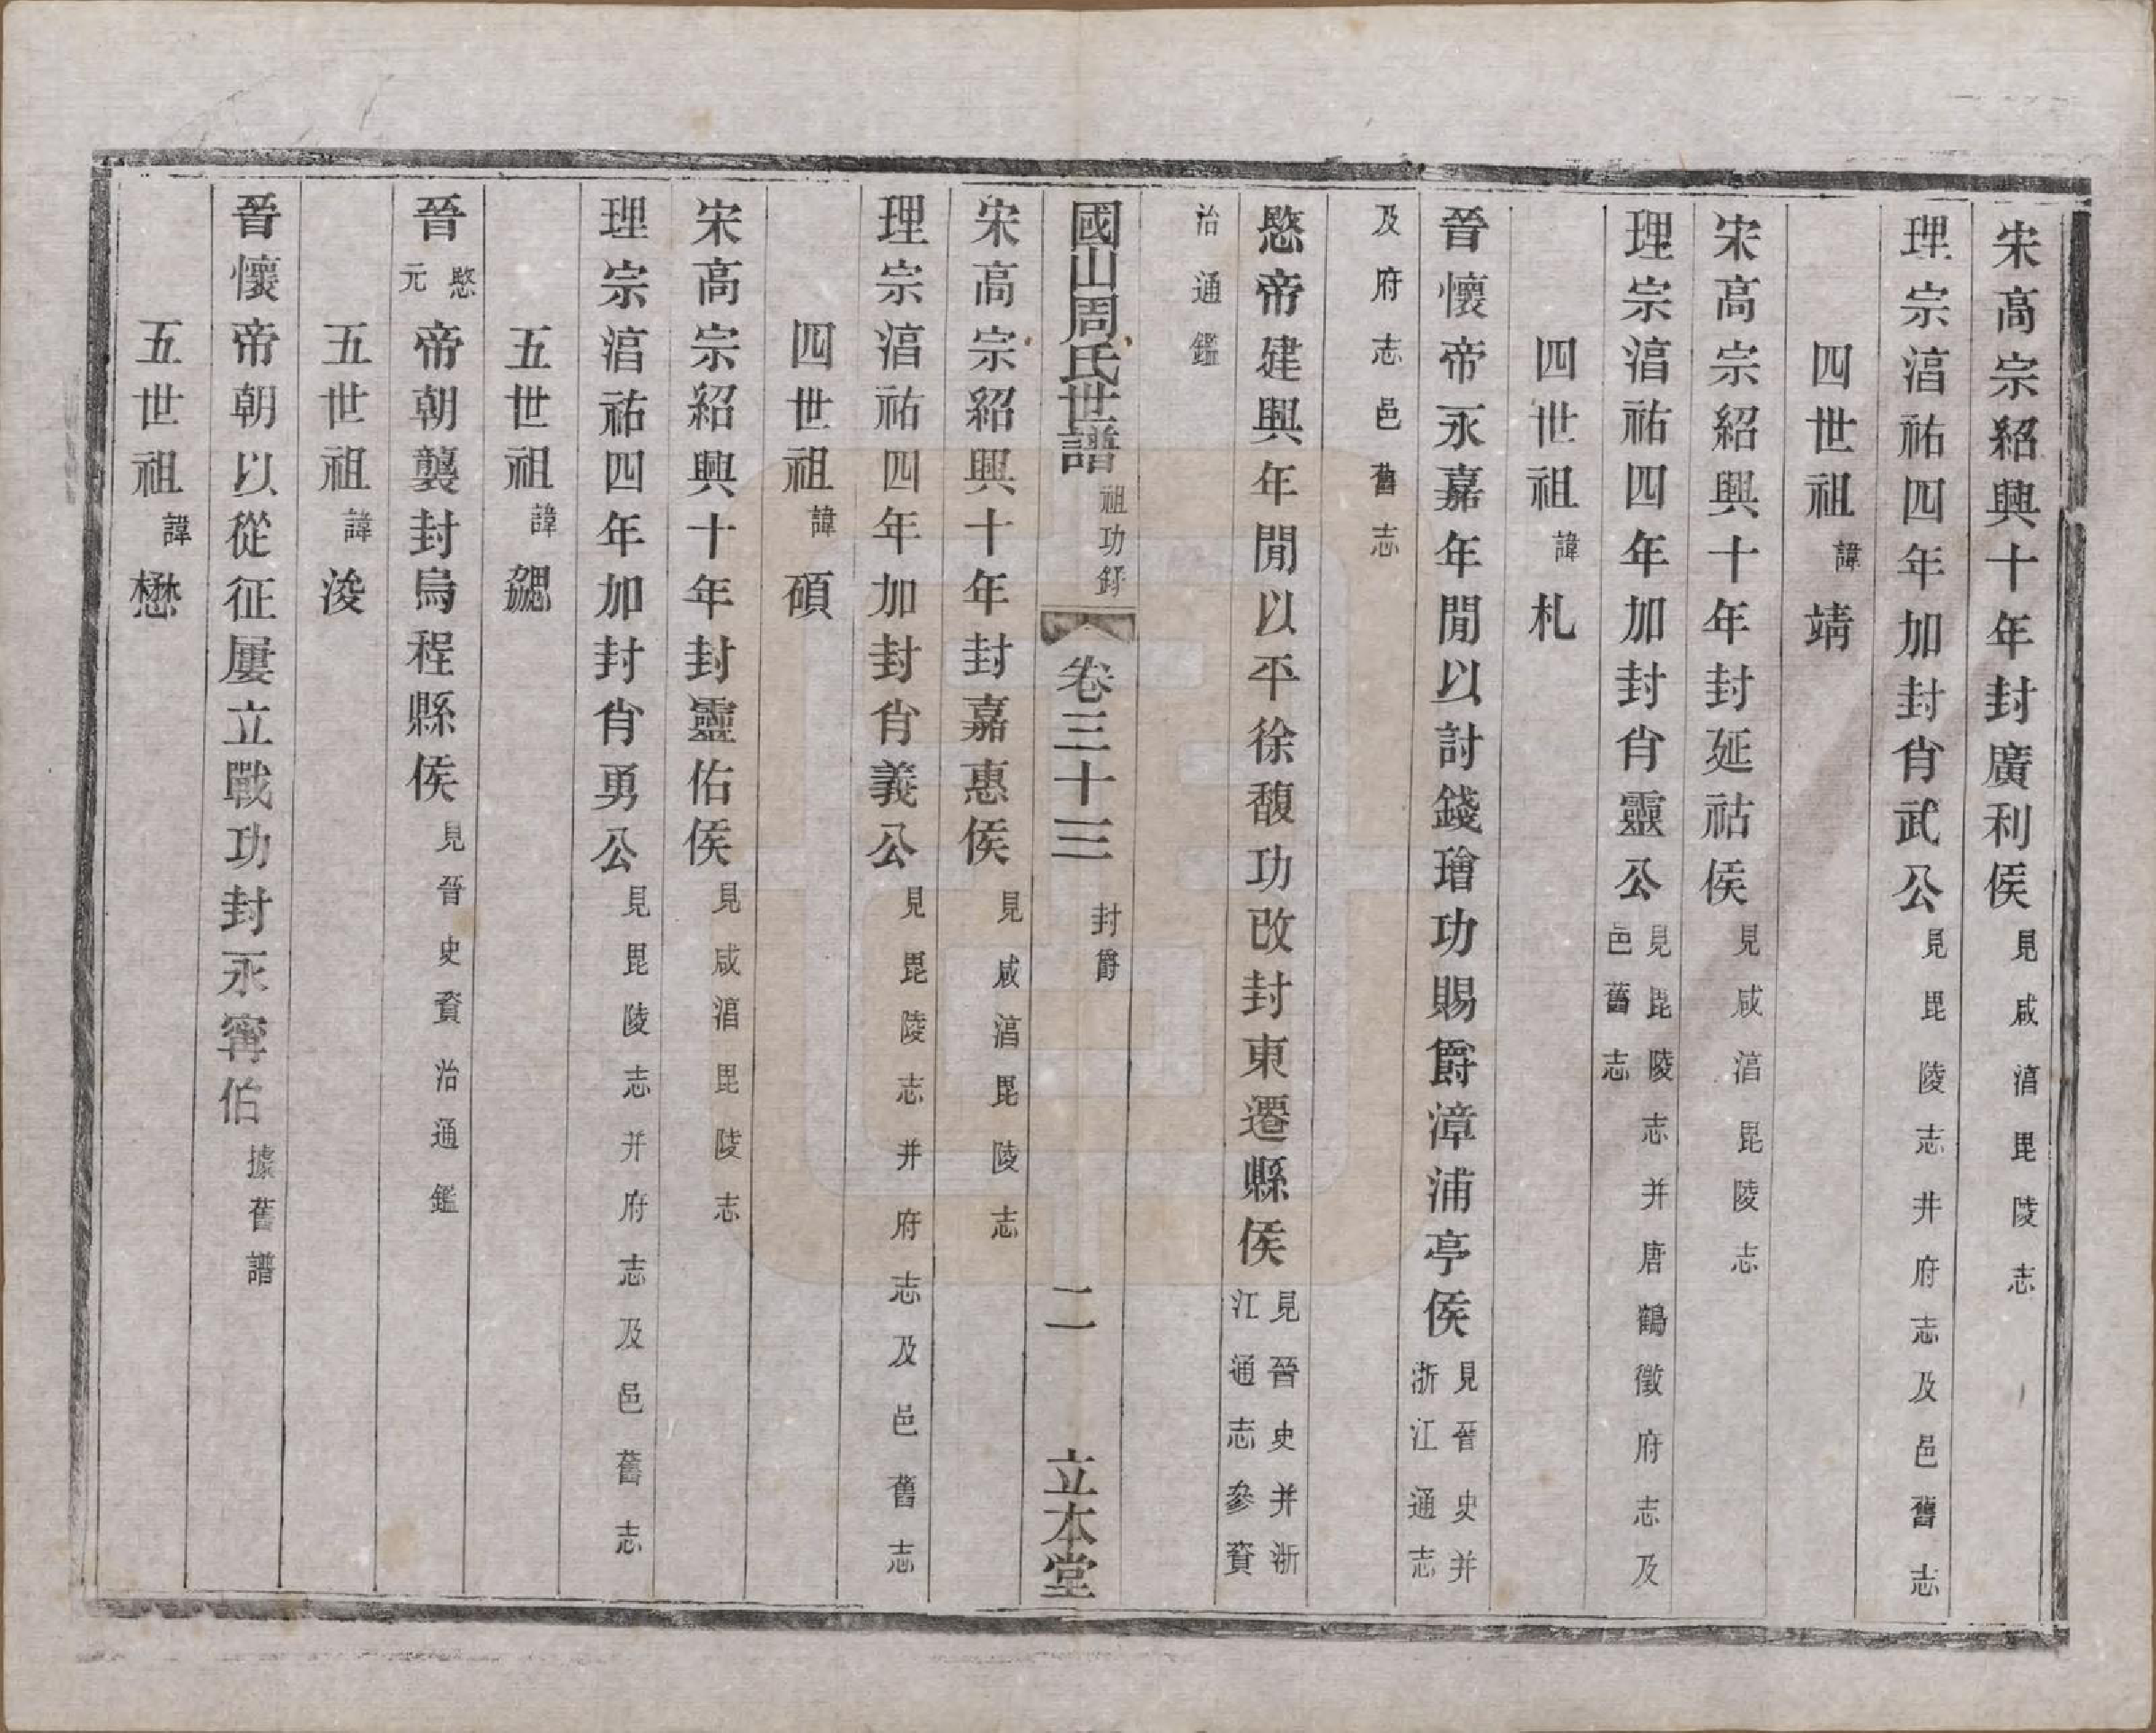 宋高宗紹興十年封廣利侯見咸湻毘陵志
理宗湻祐四年加封肖武公見毘陵志并府志及邑舊志
四世祖諱靖
宋高宗紹興十年封延祜侯見咸湻毘陵志
理宗湻祐四年加封肖靈公見毘陵志并唐鶴徵府志及邑舊志
四世祖諱札
晉懷帝永嘉年閒以討錢璯功賜爵漳浦亭侯見晉史并浙江通志
及府志邑舊志
愍帝建興年閒以平徐馥功改封東遷縣侯見晉史并浙江通志參資
治通鑑
國山周氏世譜 祖功錄 卷三十三 封爵 二 立本堂
宋高宗紹興十年封嘉惠侯見咸湻毘陵志
理宗湻祐四年加封肖義公見毘陵志并府志及邑舊志
四世祖諱碩
宋高宗紹興十年封靈佑侯見咸湻毘陵志
理宗湻祐四年加封肖勇公見毘陵志并府志及邑舊志
五世祖諱勰
晉愍元帝朝襲封烏程縣侯見晉史資治通鑑
五世祖諱浚
晉懷帝朝以從征屢立戰功封永寗伯據舊譜
五世祖諱懋